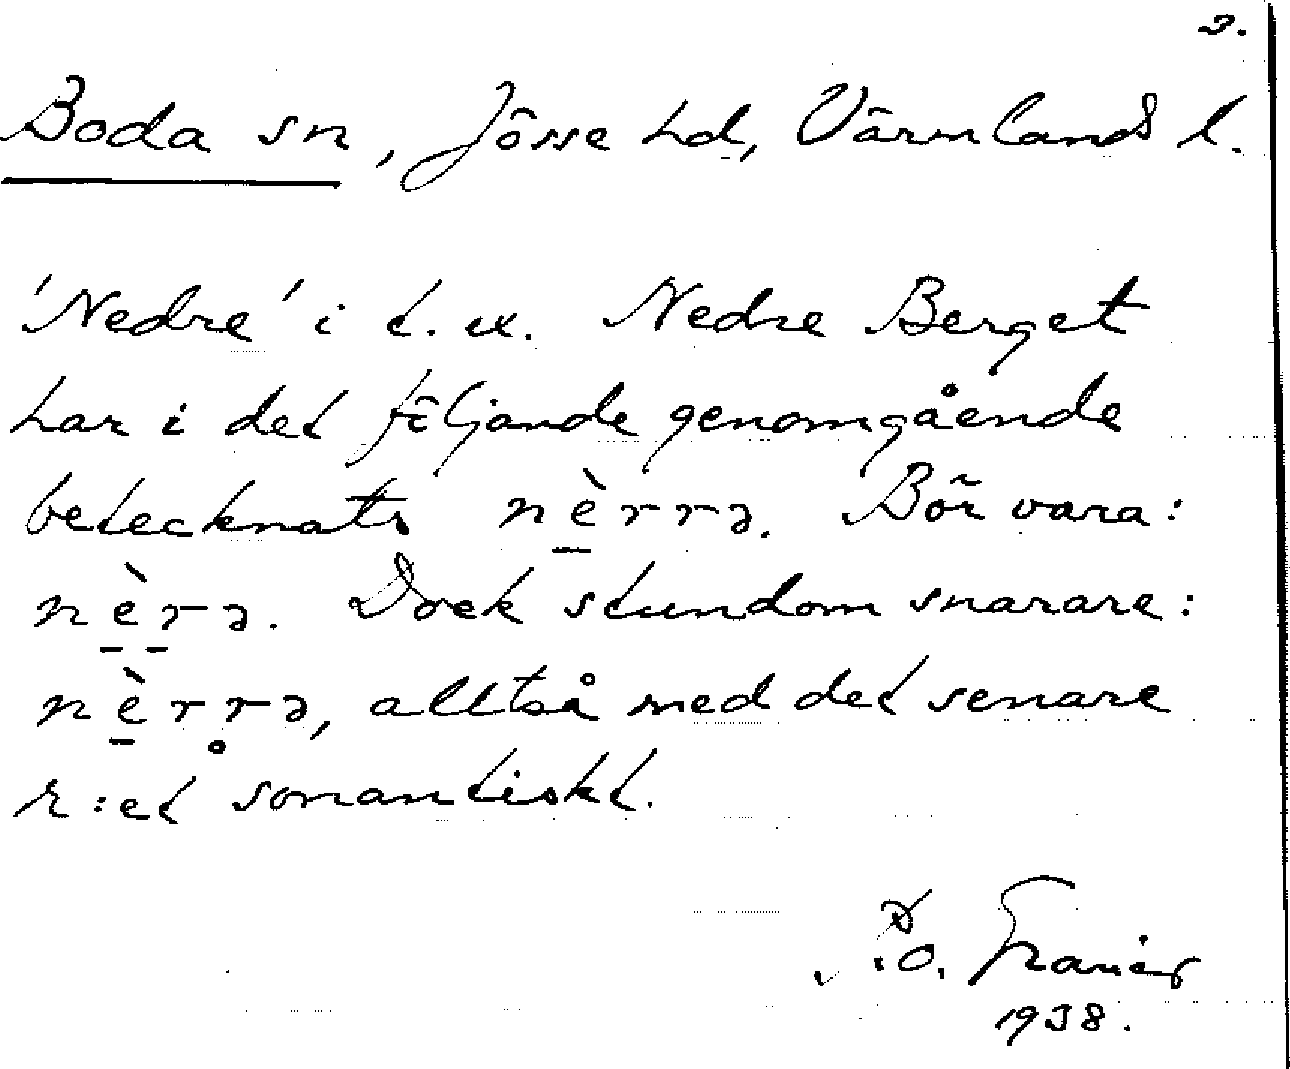 2.
Boda sn, Jösse hd, Värmlands l.
'Nedre' i t. ex. Nedre Berget
har i det följande genomgående
betecknats nè̱rrə. Bör vara:
nè̱ṟə. Dock stundom snarare:
nè̱rr̥ə, alltså med det senare
r:et sonantiskt.
R.O.
1938.